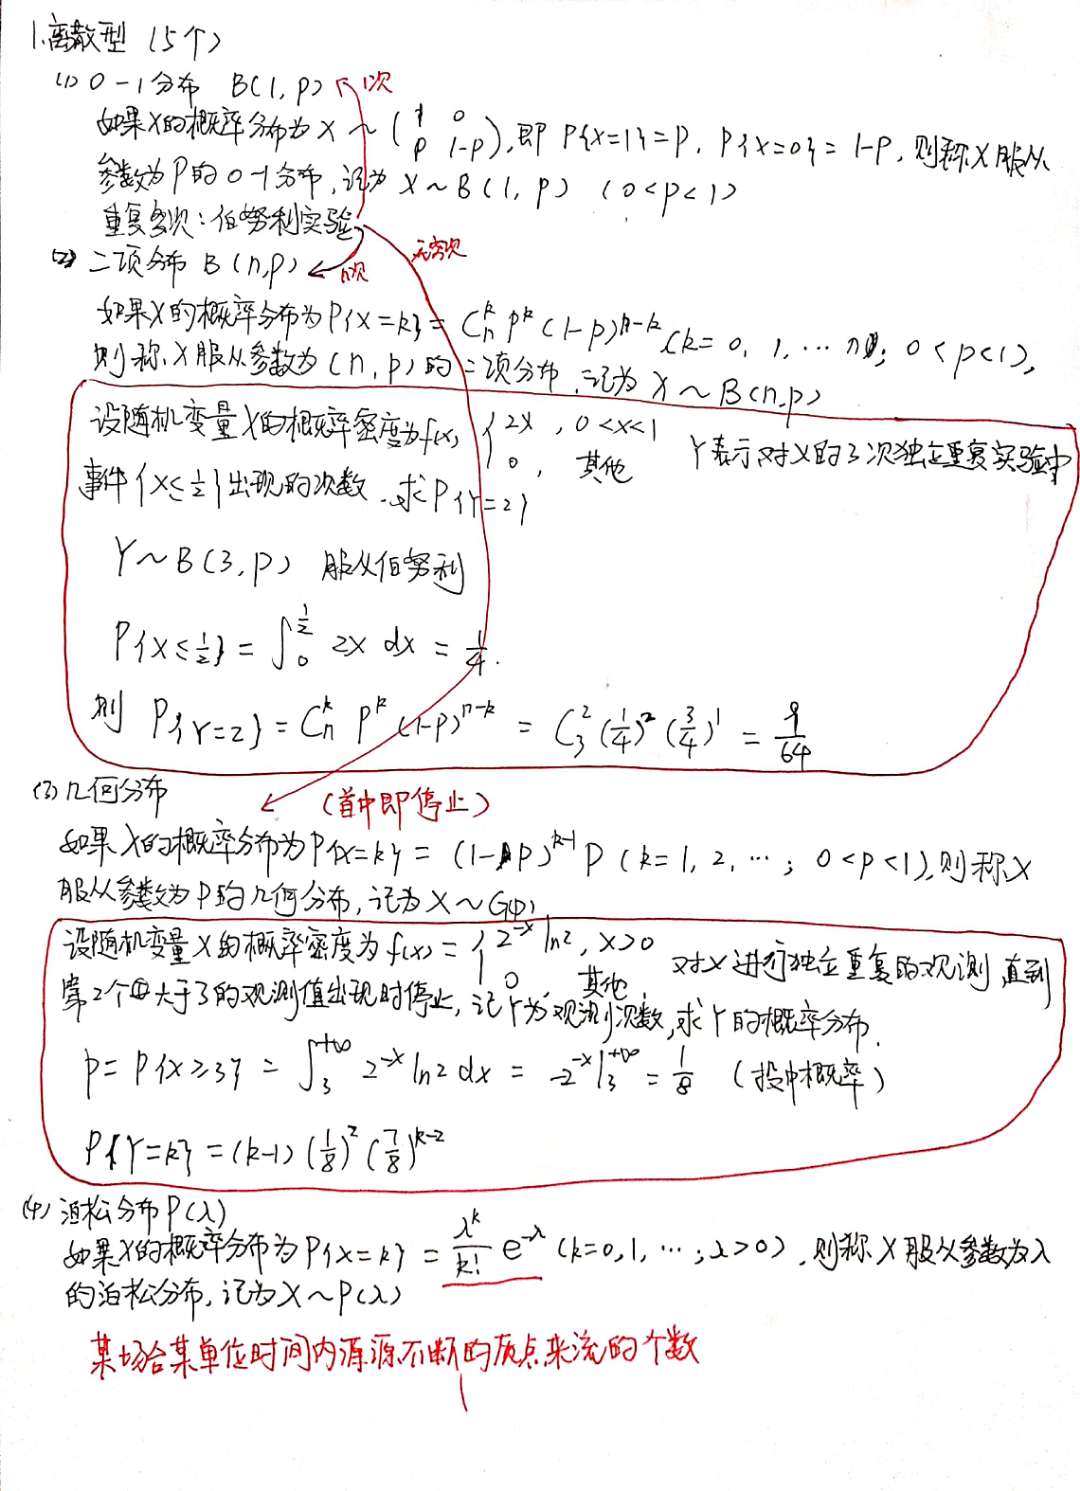 1.离散型 (5个)
(1) 0-1分布 B(1, p) 1次
如果X的概率分布为 X ~ (1 0 / p 1-p), 即 P{X=1}=p, P{X=0}=1-p, 则称X服从
参数为p的0-1分布, 记为 X~B(1, p) (0<p<1)
重复多次: 伯努利实验
(2) 二项分布 B(n,p) n次 无穷次
如果X的概率分布为P{X=k}= C_n^k p^k (1-p)^{n-k} (k=0, 1, … n; 0<p<1),
则称X服从参数为(n, p)的二项分布, 记为 X~B(n,p)
设随机变量X的概率密度为f(x) { 2x , 0<x<1 Y表示对X的3次独立重复实验中
0, 其他
事件{X≤1/2}出现的次数, 求P{Y=2}
Y~B(3, p) 服从伯努利
P{X≤1/2} = ∫_0^{1/2} 2x dx = 1/4.
则 P{Y=2} = C_n^k p^k (1-p)^{n-k} = C_3^2 (1/4)^2 (3/4)^1 = 9/64
(3) 几何分布 (首中即停止)
如果X的概率分布为P{X=k} = (1-p)^{k-1} p (k=1, 2, … ; 0<p<1), 则称X
服从参数为p的几何分布, 记为X~G(p)
设随机变量X的概率密度为f(x) = { 2^{-x} ln2, x>0 对X进行独立重复的观测, 直到
0, 其他,
第2个大于3的观测值出现时停止, 记Y为观测次数, 求Y的概率分布.
p = P{X≥3} = ∫_3^{+∞} 2^{-x} ln2 dx = -2^{-x}|_3^{+∞} = 1/8 (投中概率)
P{Y=k} = (k-1) (1/8)^2 (7/8)^{k-2}
(4) 泊松分布 P(λ)
如果X的概率分布为P{X=k} = λ^k/k! e^{-λ} (k=0,1, … ; λ>0), 则称X服从参数为λ
的泊松分布, 记为X~P(λ)
某场合某单位时间内源源不断的质点来流的个数